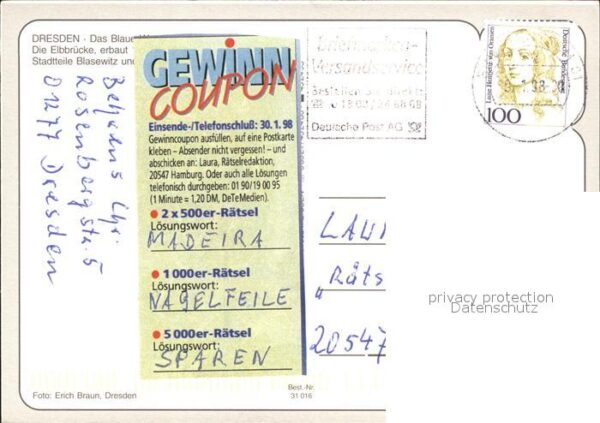 DRESDEN · Das Blaue
Die Elbbrücke, erbaut
Stadtteile Blasewitz und
Rosenbergstr. 5
Dresden
GEWINN
COUPON
Einsende-/Telefonschluß: 30.1.98
Gewinncoupon ausfüllen, auf eine Postkarte
kleben – Absender nicht vergessen! – und
abschicken an: Laura, Rätselredaktion,
20547 Hamburg. Oder auch alle Lösungen
telefonisch durchgeben: 01 90/19 00 95
(1 Minute = 1,20 DM, DeTeMedien).
2 x 500er-Rätsel
Lösungswort:
MADEIRA
1 000er-Rätsel
Lösungswort:
NAGELFEILE
5 000er-Rätsel
Lösungswort:
SPAREN
Briefmarken-
Versandservice
Bestellen Sie direkt
Deutsche Post AG
Luise Henriette von Oranien
Deutsche Bundespost
100
"Räts
20547
privacy protection
Datenschutz
Foto: Erich Braun, Dresden
Best.-Nr.
31 016